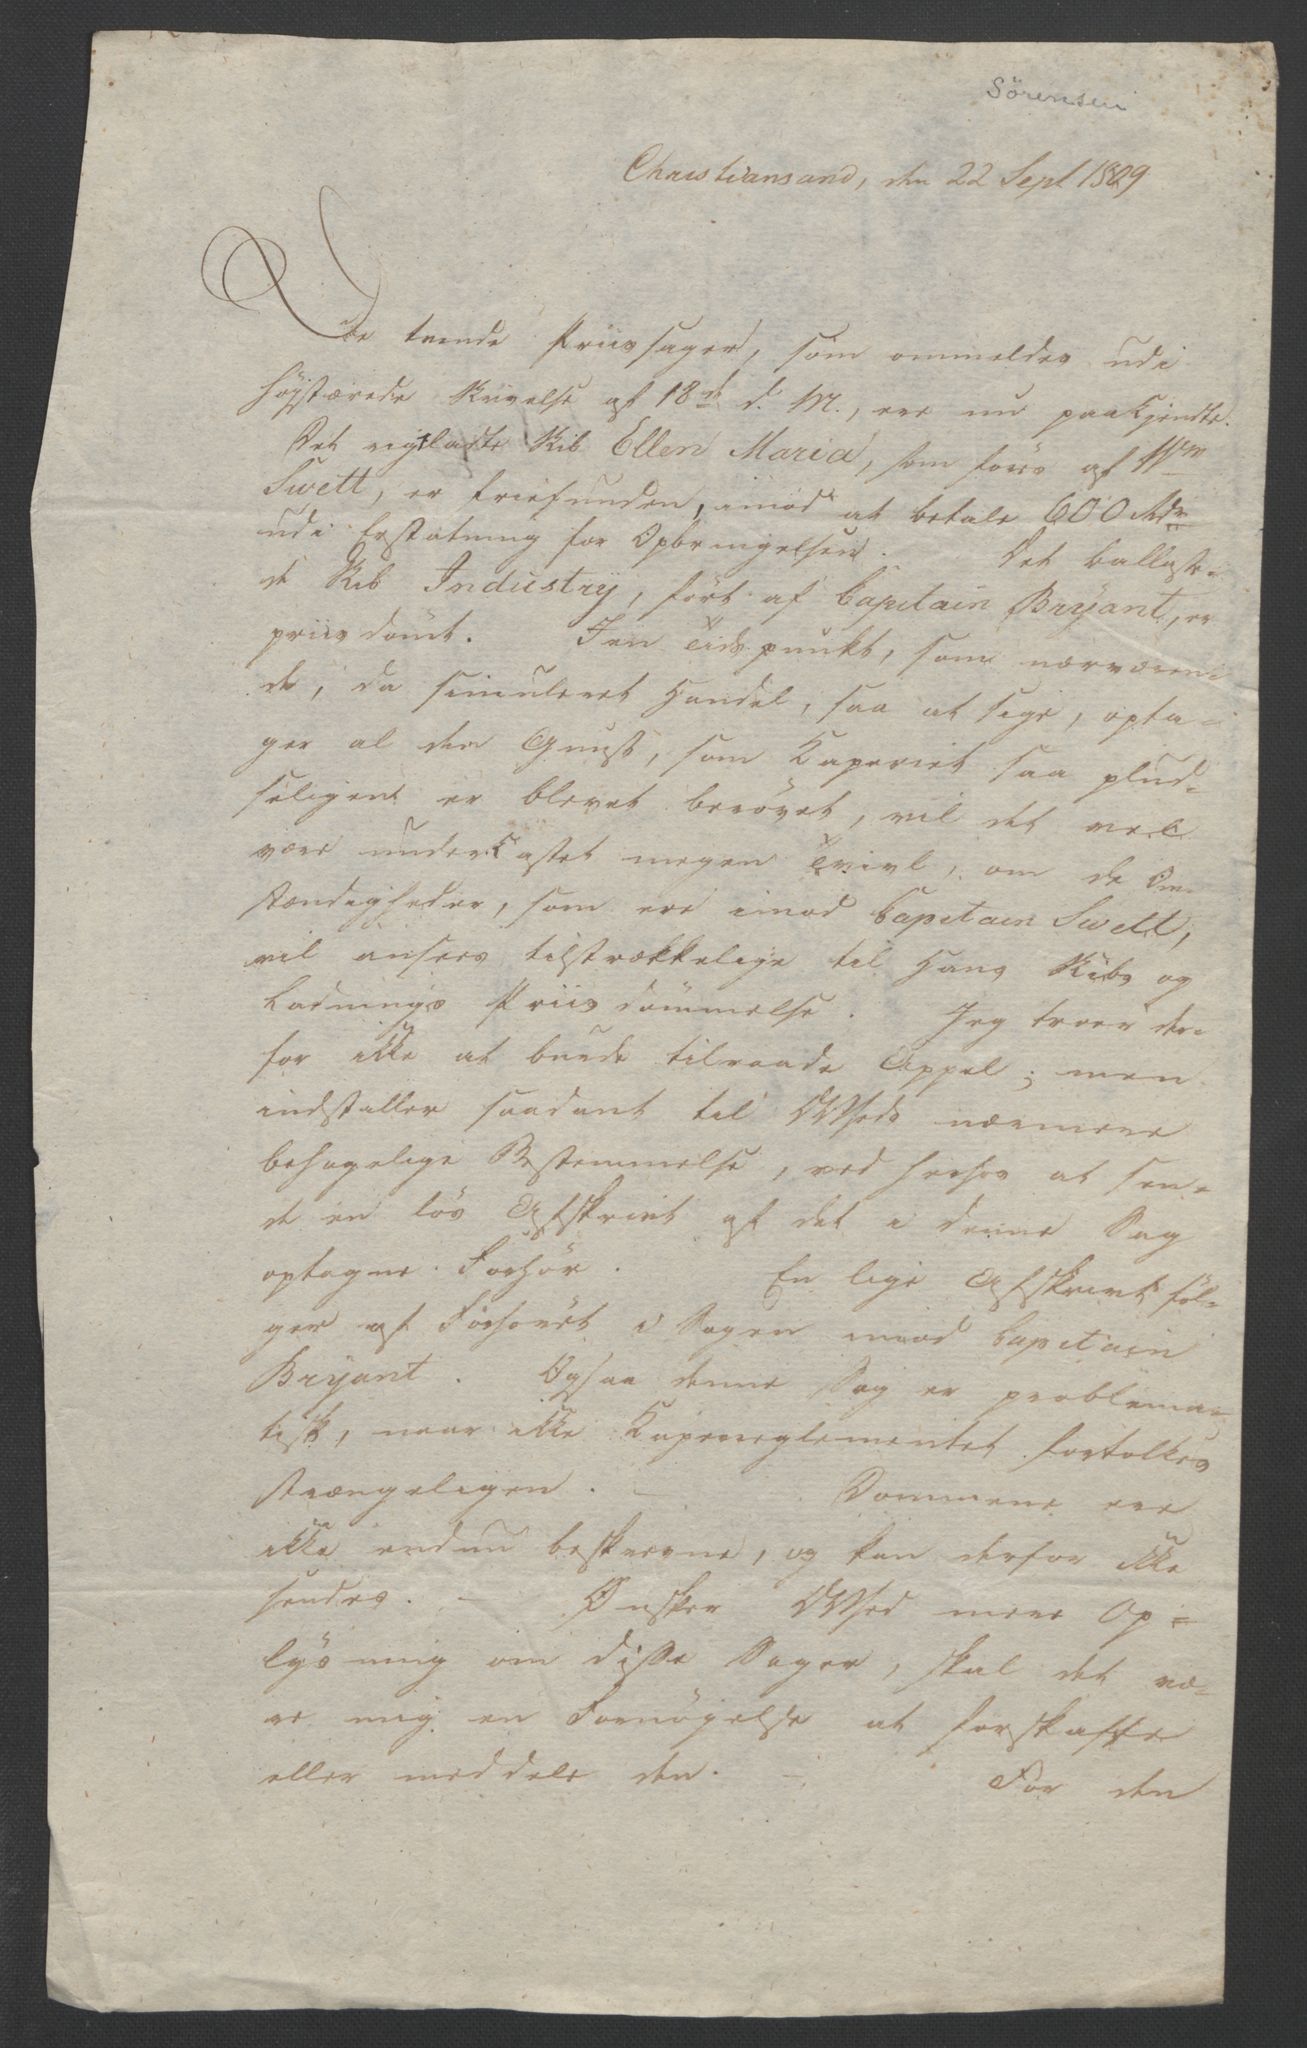 Sörensen
Christiansand, den 22 Sept 1809
De tvende Priissager, som ommeldes udi
høystærede Skrivelse af 18de d. M., ere nu paakjendte.
Det rigtladte Skib Ellen Maria, som föres af Wm
Swett, er friefunden, imod at betale 600 Rdr
udi Erstatning for Opbringelsen. Det ballaste-
de Skib Industry, fört af Capitain Bryant, er
priisdömt. I en Tidspunkt, som nærværen-
de, da simuleret Handel, saa at sige, opta-
ger al den Gunst, som Kaperiet saa plud-
seligen er blevet berövet, vil det vel
være underkastet megen Tvivl, om de Om-
stændigheder, som ere imod Capitain Swett,
vil ansees tilstrækkelige til Hans Skibs og
Ladnings Priisdömmelse. Jeg troer der-
for ikke at burde tilraade Appel; men
indstiller saadant til DWHeds nærmere
behagelige Bestemmelse, ved herhos at sen-
de en løs Afskrivt af det i denne Sag
optagne Forhör. En lige Afskrivt föl-
ger af Forhöret i Sagen imod Capitain
Bryant. Ogsaa denne Sag er problema-
tisk, naar ikke Kaperreglementet fortolkes
strængeligen. Dommene ere
ikke endnu beskrevne, og kan derfor ikke
sendes. — Ønsker DWHed mere Op-
lysning om disse Sager, skal det væ-
re mig en Fornöyelse at forskaffe
eller meddele den. — For den